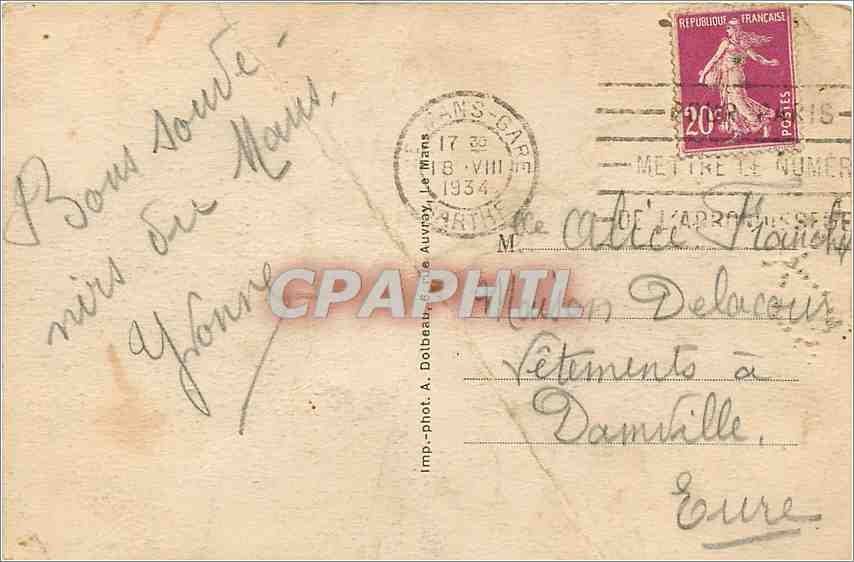 Bons souve-
nirs du Mans,
Yvonne
Imp.-phot. A. Dolbeau, 6, rue Auvray, Le Mans
MANS-GARE
17 30
18 · VIII
1934
SARTHE
RÉPUBLIQUE FRANÇAISE
20c
POSTES
POUR PARIS
METTRE LE NUMER
DE L'ARRONDISSEME
CPAPHIL
Mlle Alice
Maison Delacour
Vêtements à
Damville,
Eure